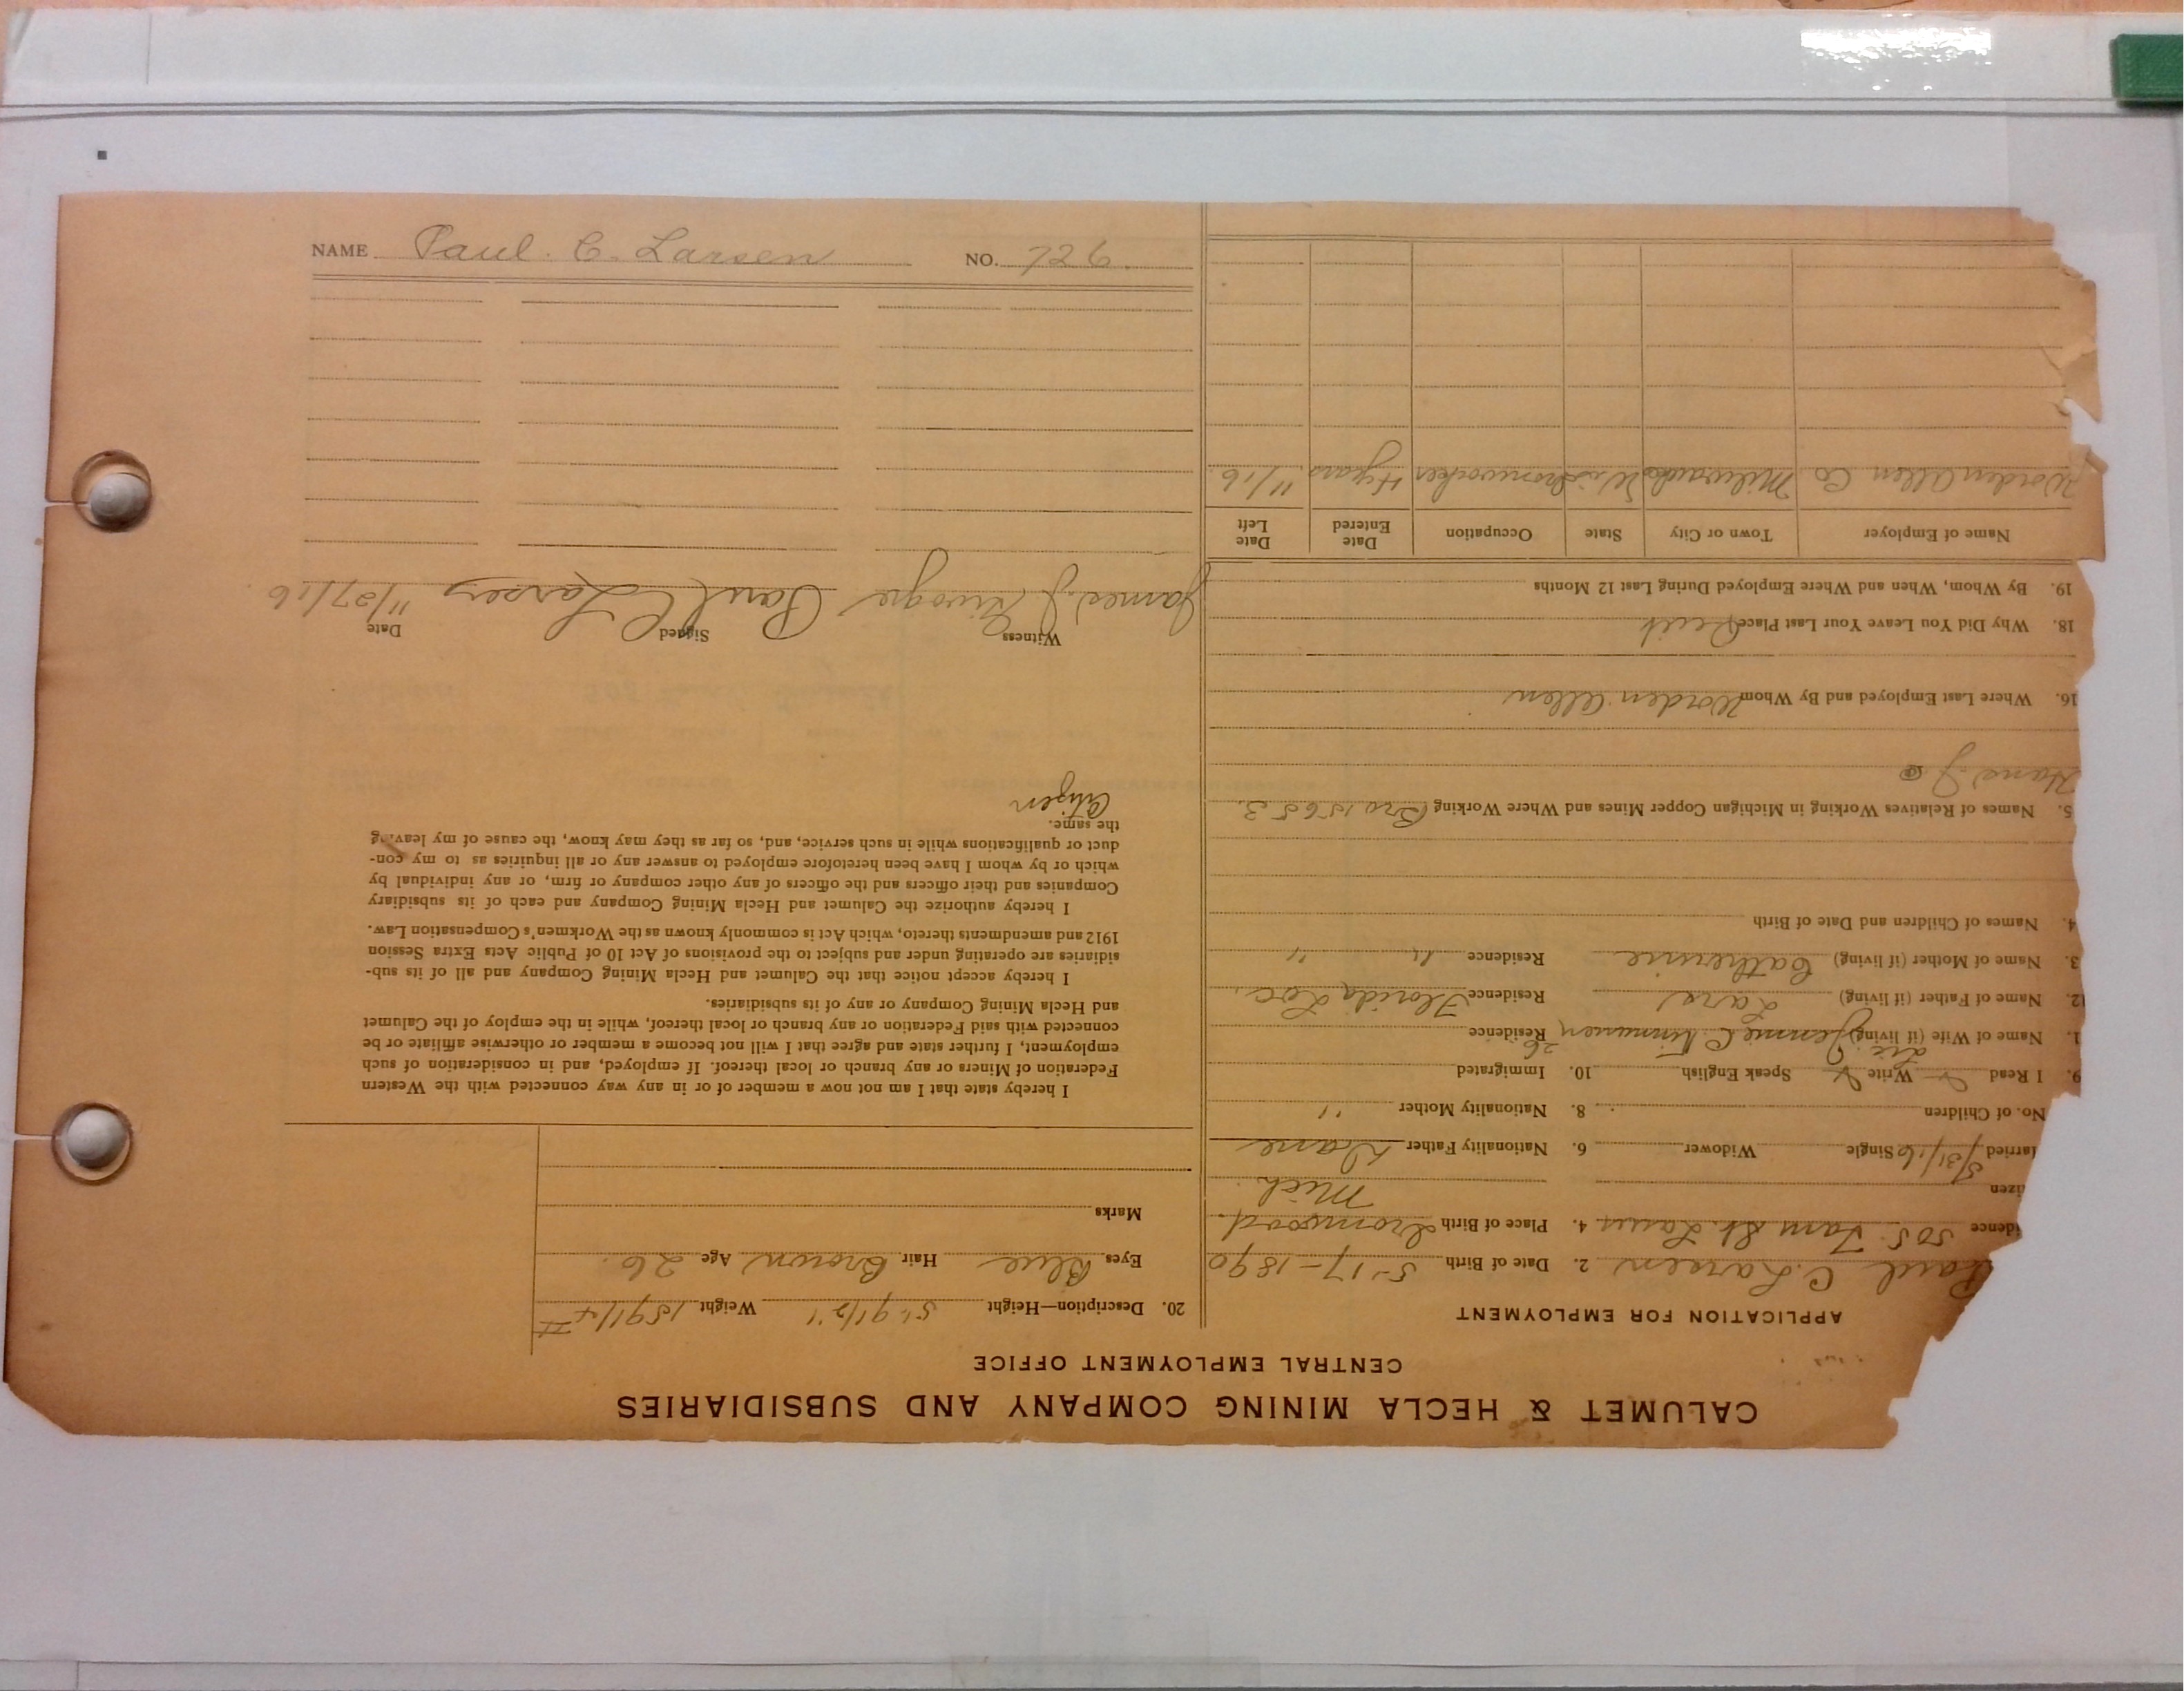 CALUMET & HECLA MINING COMPANY AND SUBSIDIARIES
CENTRAL EMPLOYMENT OFFICE
APPLICATION FOR EMPLOYMENT
Paul C. Larsen 2. Date of Birth 5-17-1890
idence 505. Tam St. Laur 4. Place of Birth Ironwood.
izen Mich.
arried 5/31/16 Single Widower 6. Nationality Father Dane
No. of Children 8. Nationality Mother "
9. I Read Write Speak English 10. Immigrated
1. Name of Wife (if living) Jennie C. Residence
12. Name of Father (if living) Lars Residence Florida Loc.
3. Name of Mother (if living) Catherine Residence " "
4. Names of Children and Date of Birth
5. Names of Relatives Working in Michigan Copper Mines and Where Working Bro 15653.
Hans J
16. Where Last Employed and By Whom Worden Allen
18. Why Did You Leave Your Last Place Quit
19. By Whom, When and Where Employed During Last 12 Months
Name of Employer Town or City State Occupation Date Entered Date Left
Worden Allen Co Milwaukee Wis Ironworker 4 years 11/16
20. Description—Height 5' 9 1/2" Weight 159 1/4 #
Eyes Blue Hair Brown Age 26.
Marks
I hereby state that I am not now a member of or in any way connected with the Western
Federation of Miners or any branch or local thereof. If employed, and in consideration of such
employment, I further state and agree that I will not become a member or otherwise affiliate or be
connected with said Federation or any branch or local thereof, while in the employ of the Calumet
and Hecla Mining Company or any of its subsidiaries.
I hereby accept notice that the Calumet and Hecla Mining Company and all of its sub-
sidiaries are operating under and subject to the provisions of Act 10 of Public Acts Extra Session
1912 and amendments thereto, which Act is commonly known as the Workmen's Compensation Law.
I hereby authorize the Calumet and Hecla Mining Company and each of its subsidiary
Companies and their officers and the officers of any other company or firm, or any individual by
which or by whom I have been heretofore employed to answer any or all inquiries as to my con-
duct or qualifications while in such service, and, so far as they may know, the cause of my leaving
the same.
Citizen
Witness Signed Date
James J. Paul C Larsen 11/27/16
NAME Paul. C. Larsen NO. 726.